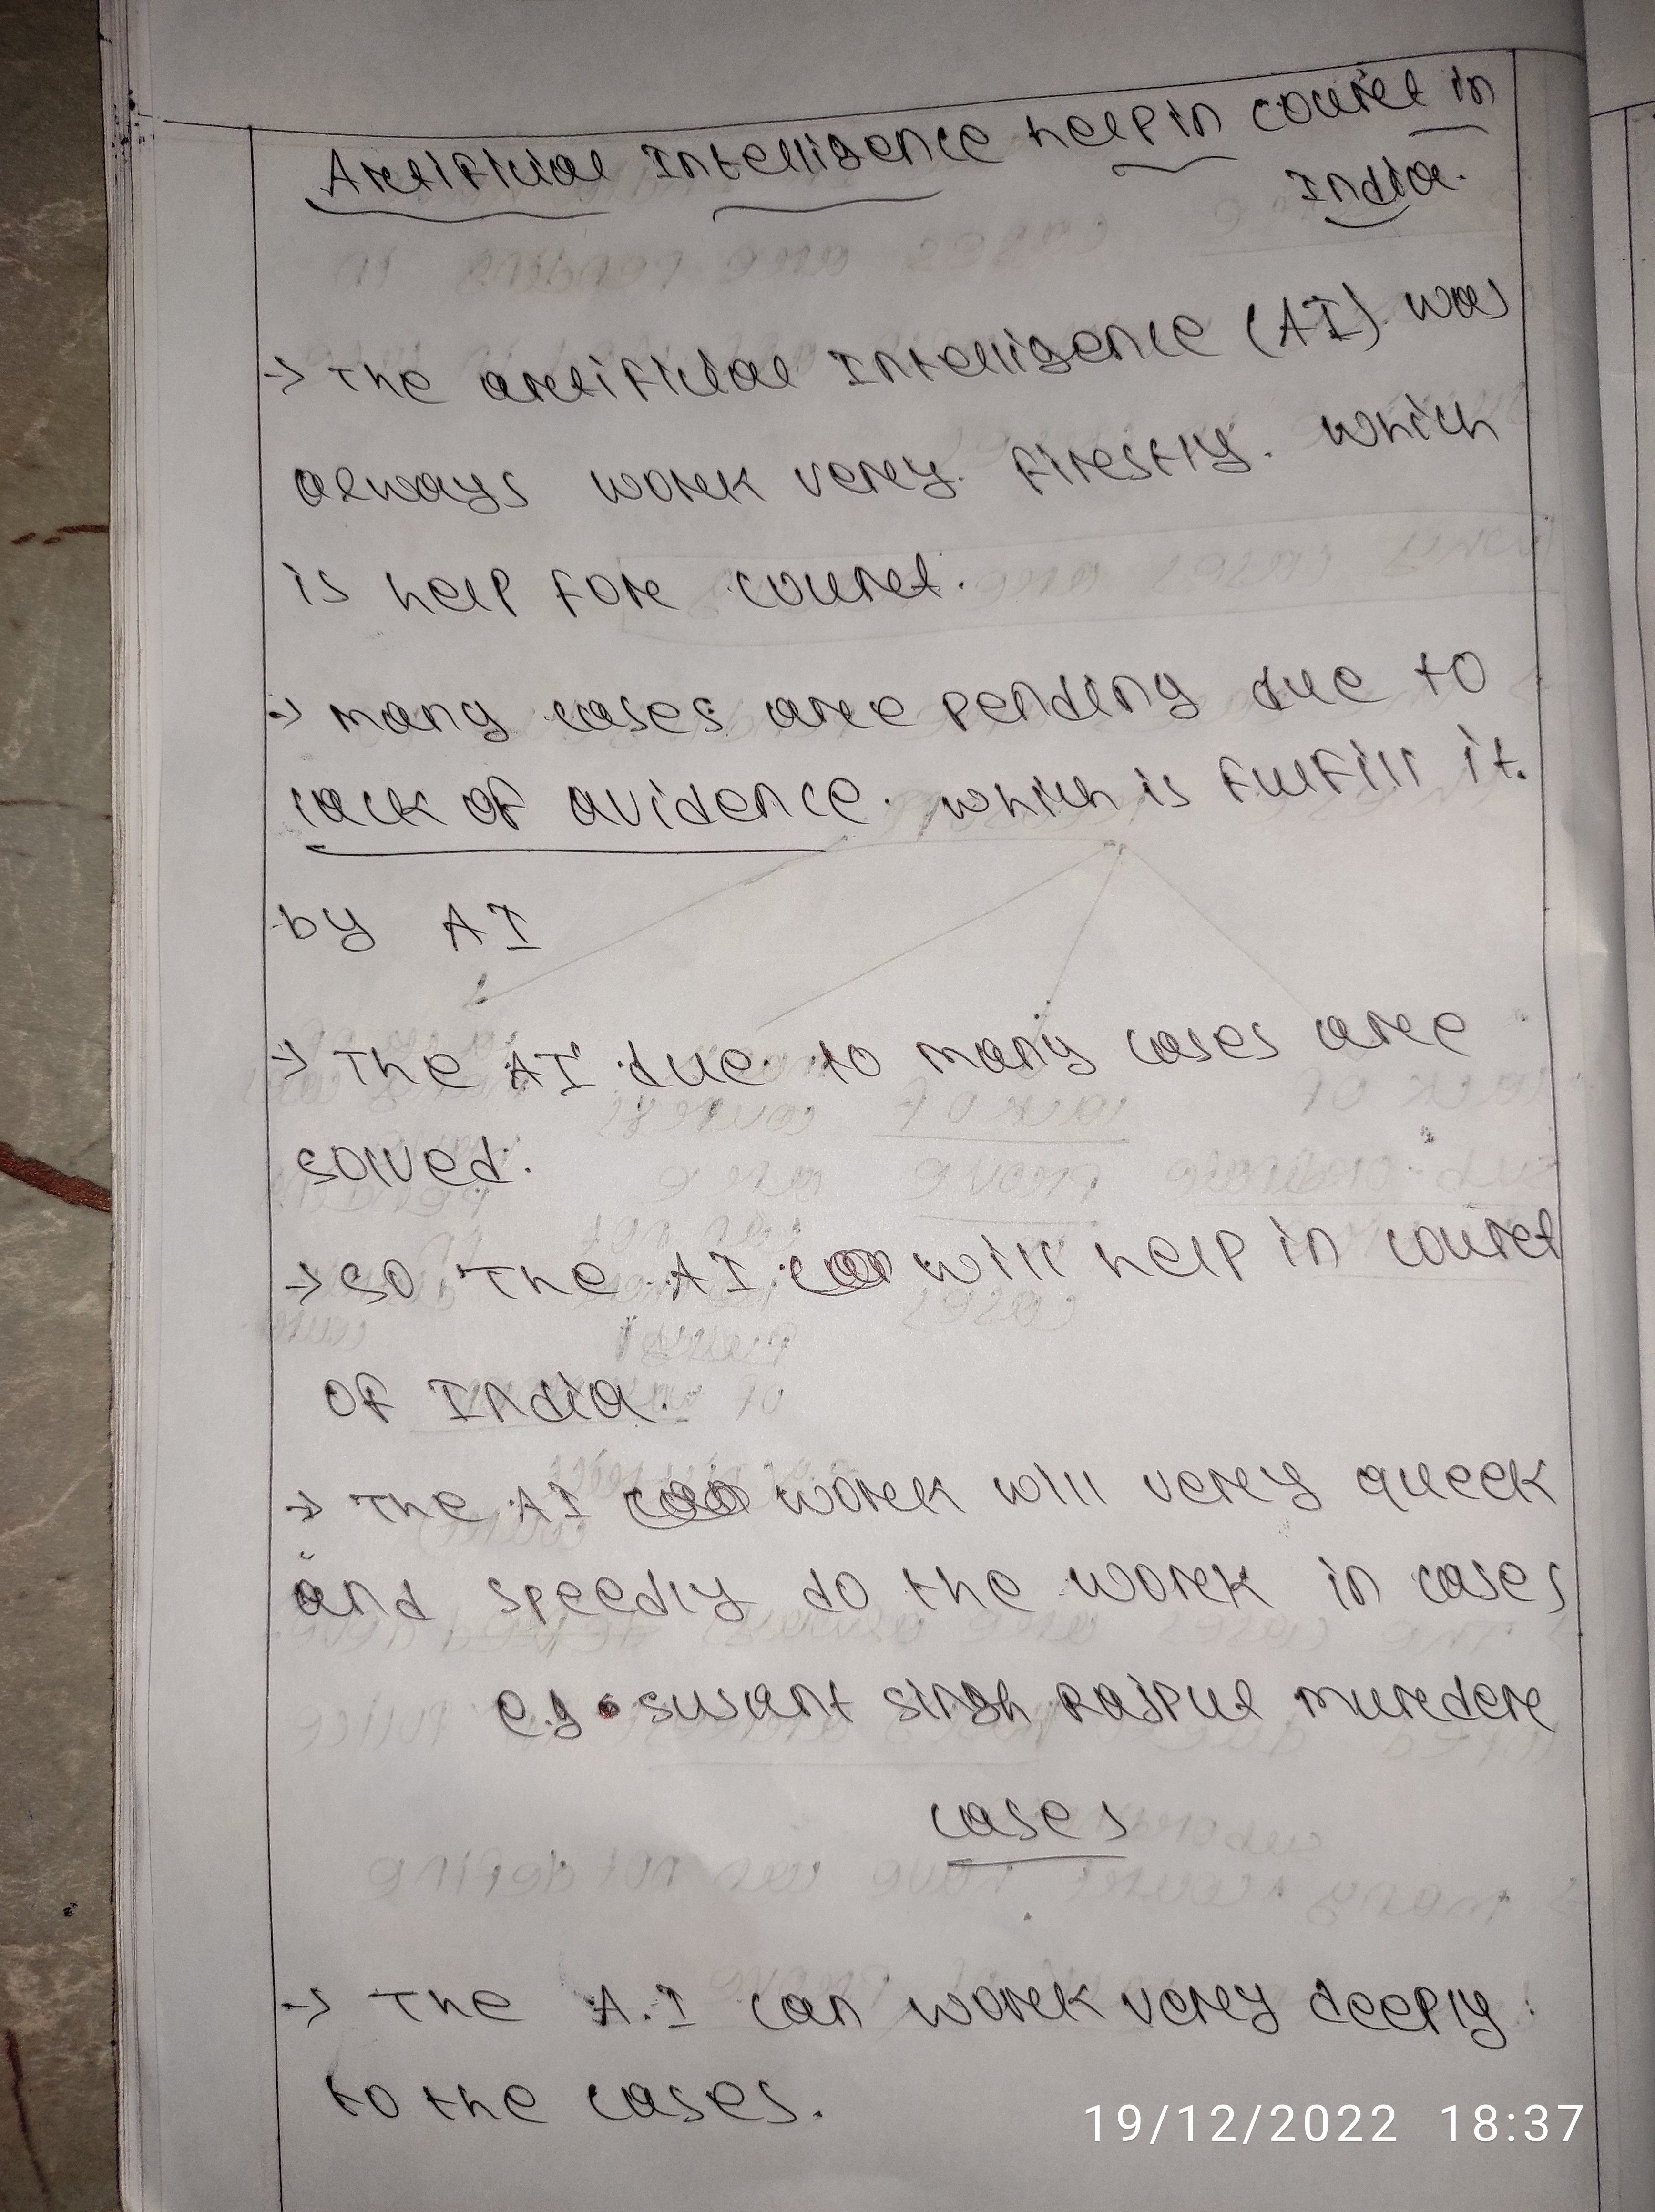 Artificial Intelligence help in court in
India.
→ The artificial Intelligence (AI) was
always work very. firstly. which
is help for court.
→ many cases are pending due to
lack of avidence. which is fulfill it.
by AI
→ The AI due to many cases are
solved.
→ so The AI will help in court
of India.
→ The AI work will very queek
and speedly do the work in cases
e.g. susant singh Rajput murder
cases
→ The A.I can work very deeply
to the cases.
19/12/2022 18:37